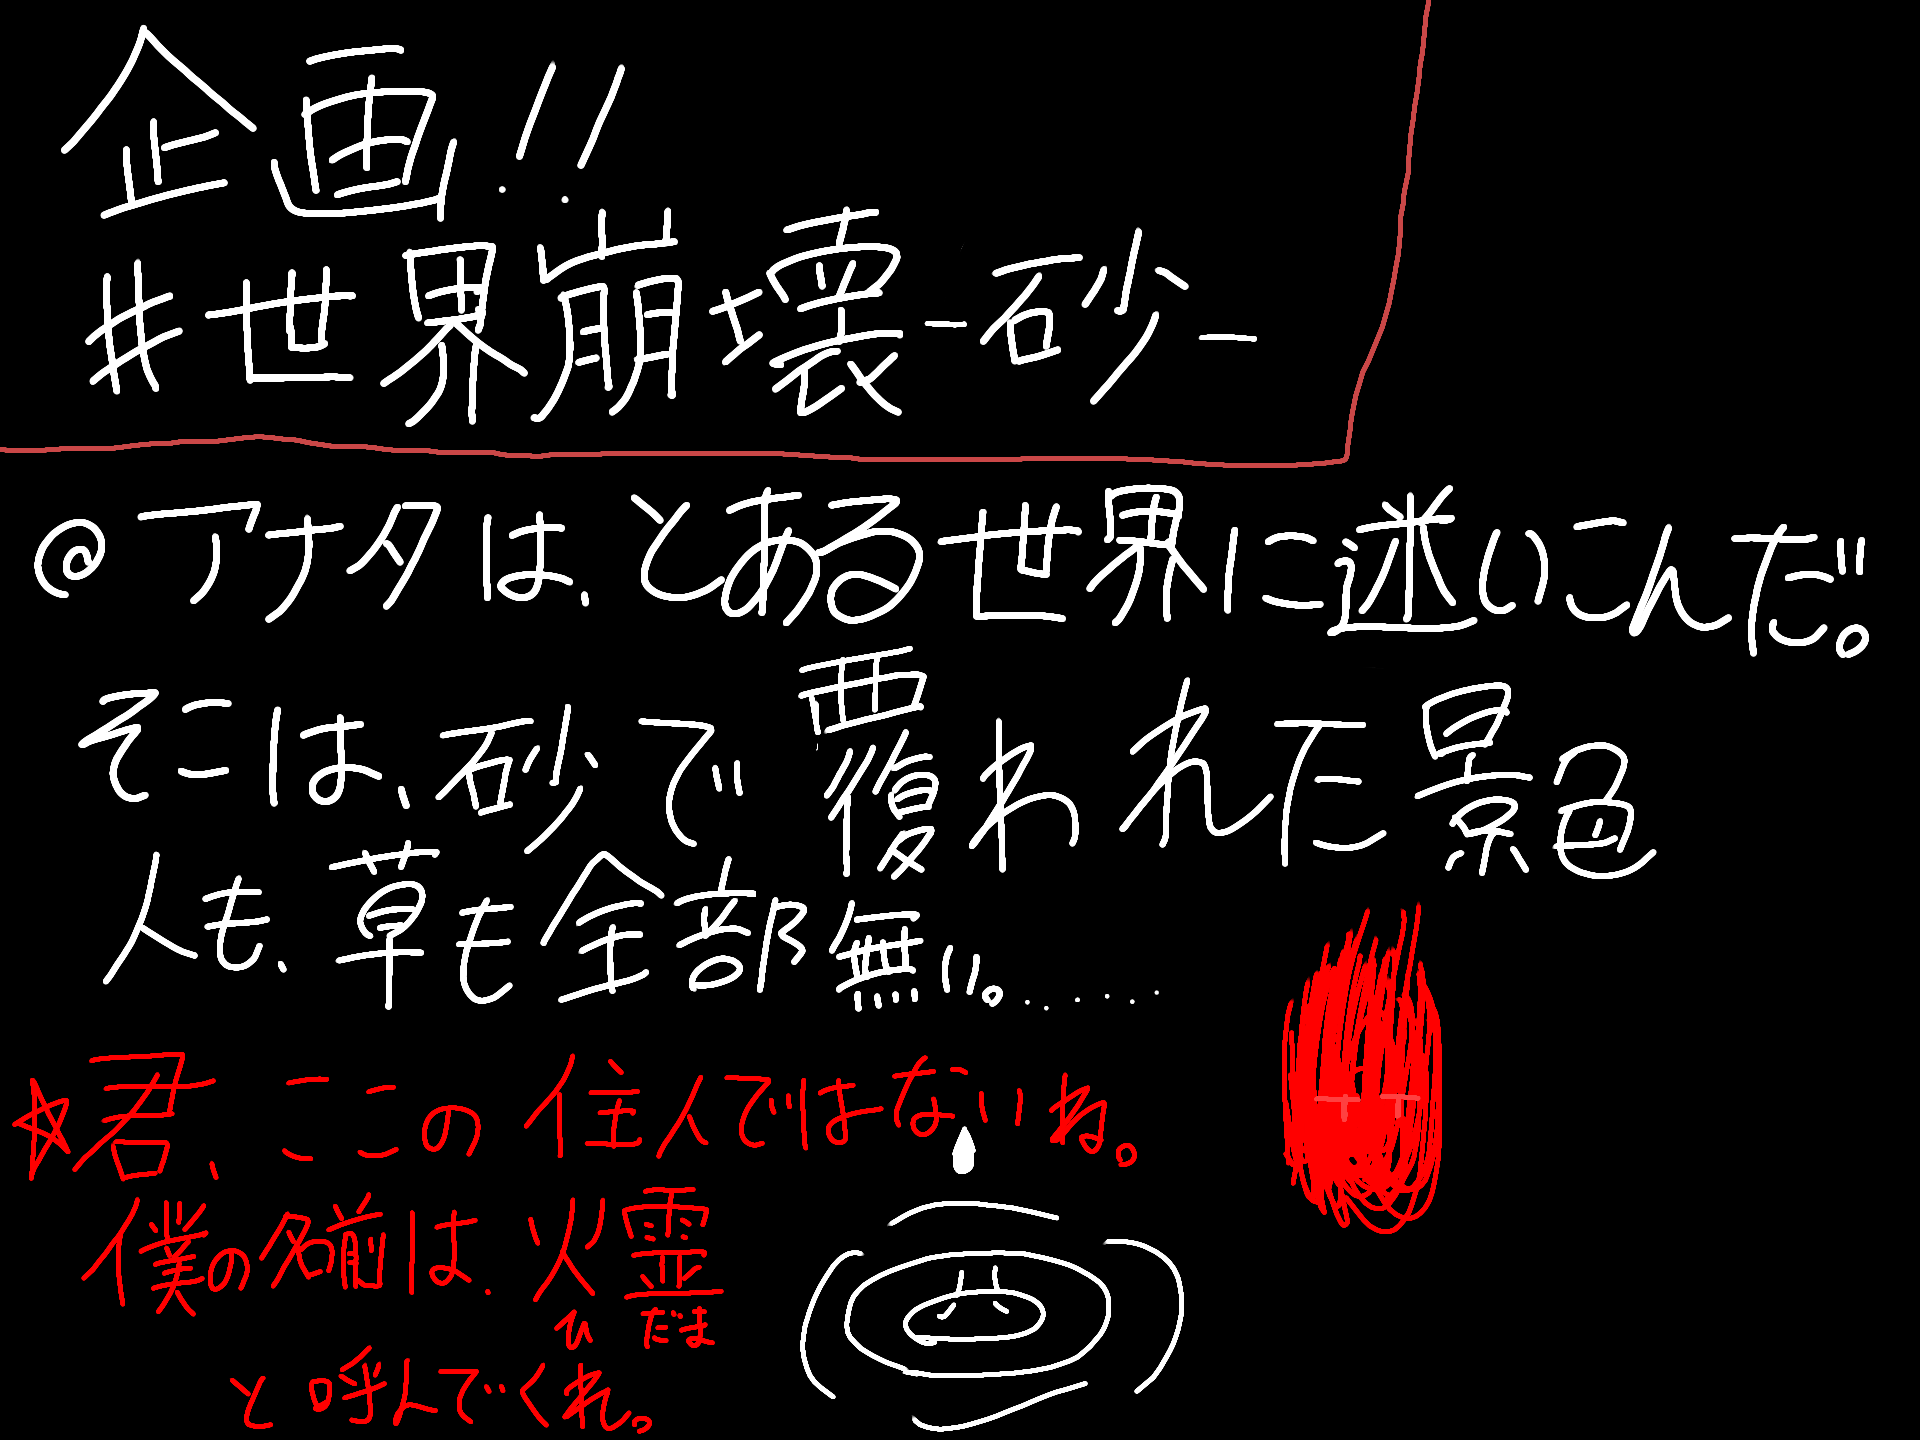 企画!!
#世界崩壊-砂-
@アナタは、とある世界に迷いこんだ。
そこは、砂で覆われた景色
人も、草も全部無い。......
☆君、ここの住人ではないね。
僕の名前は、火霊
ひだま
と呼んでくれ。